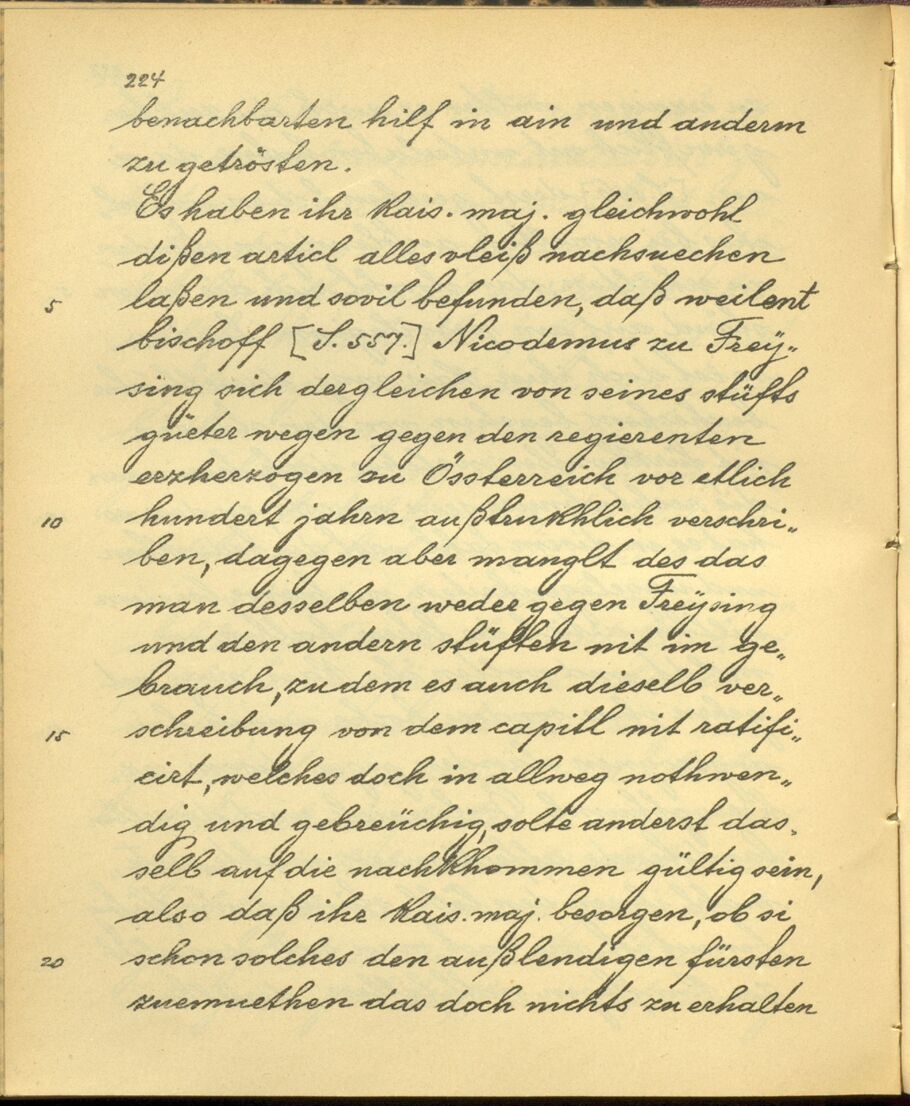 224
benachbarten hilf in ain und anderm
zu getrösten.
Es haben ihr kais. maj. gleichwohl
dißen articl alles vleiß nachsuechen
5 laßen und sovil befunden, daß weilent
bischoff [S. 557.] Nicodemus zu Frey„
sing sich dergleichen von seines stüfts
güeter wegen gegen den regierenten
erzherzogen zu Össterreich vor etlich
10 hundert jahrn außtrukhlich verschri„
ben, dagegen aber manglt des das
man desselben weder gegen Freÿsing
und den andern stüften nit im ge„
brauch, zu dem es auch dieselb ver„
15 schreibung von dem capitl nit ratifi„
cirt, welches doch in allweg nothwen„
dig und gebreüchig, solte anderst das„
selb auf die nachkhommen gültig sein,
also daß ihr kais. maj. besorgen, ob si
20 schon solches den außlendigen fürsten
zuemuethen das doch nichts zu erhalten